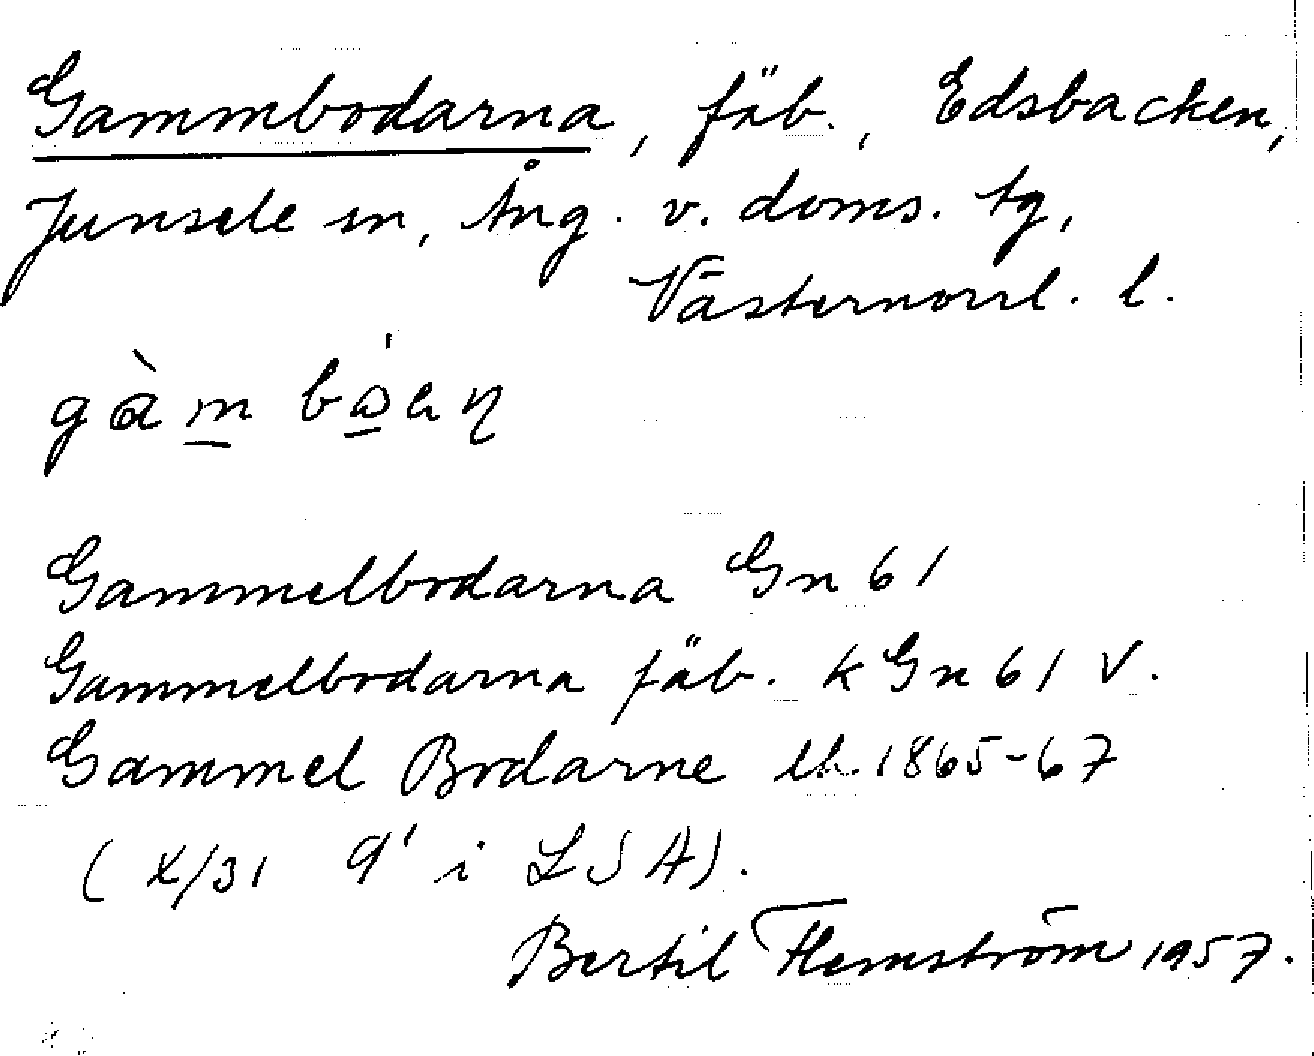 Gammbodarna, fäb., Edsbacken,
Junsele sn, Ång. v. doms. tg,
Västernorrl. l.
Gammelbodarna Gn 61
Gammelbodarna fäb. k Gn 61 V.
Gammel Bodarne lh. 1865-67
(X/31 9' i LSA).
Bertil Flemström 1957.